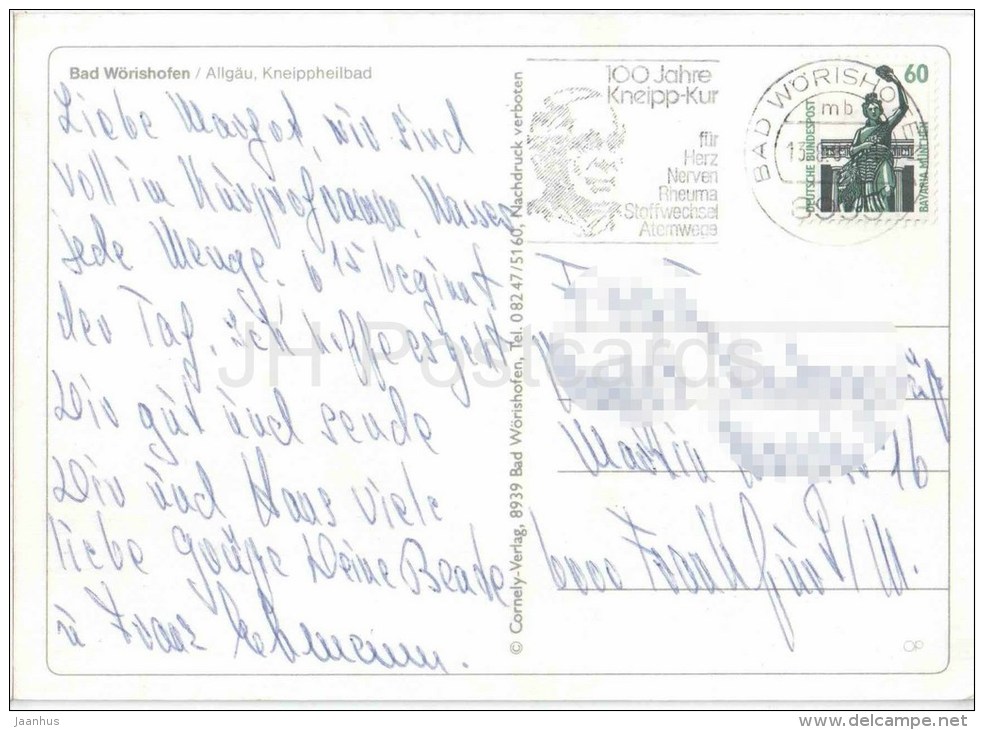 Bad Wörishofen / Allgäu, Kneippheilbad
Liebe Margot, wir sind
voll im Kurprogramm, Wasser
jede Menge, 6 15 beginnt
der Tag. ich hoffe es geht
Dir gut und sende
Dir und Hans viele
liebe Grüße Deine Beate
u Franz Lehmann.
© Cornely-Verlag, 8939 Bad Wörishofen, Tel. 0 82 47/51 60, Nachdruck verboten
100 Jahre
Kneipp-Kur
für
Herz
Nerven
Rheuma
Stoffwechsel
Atemwege
BAD WÖRISHOFEN
mb
60
DEUTSCHE BUNDESPOST
BAVARIA MÜNCHEN
Martin 16
6000 Frankfurt/M.
JH Postcards
jaanhus
www.delcampe.net